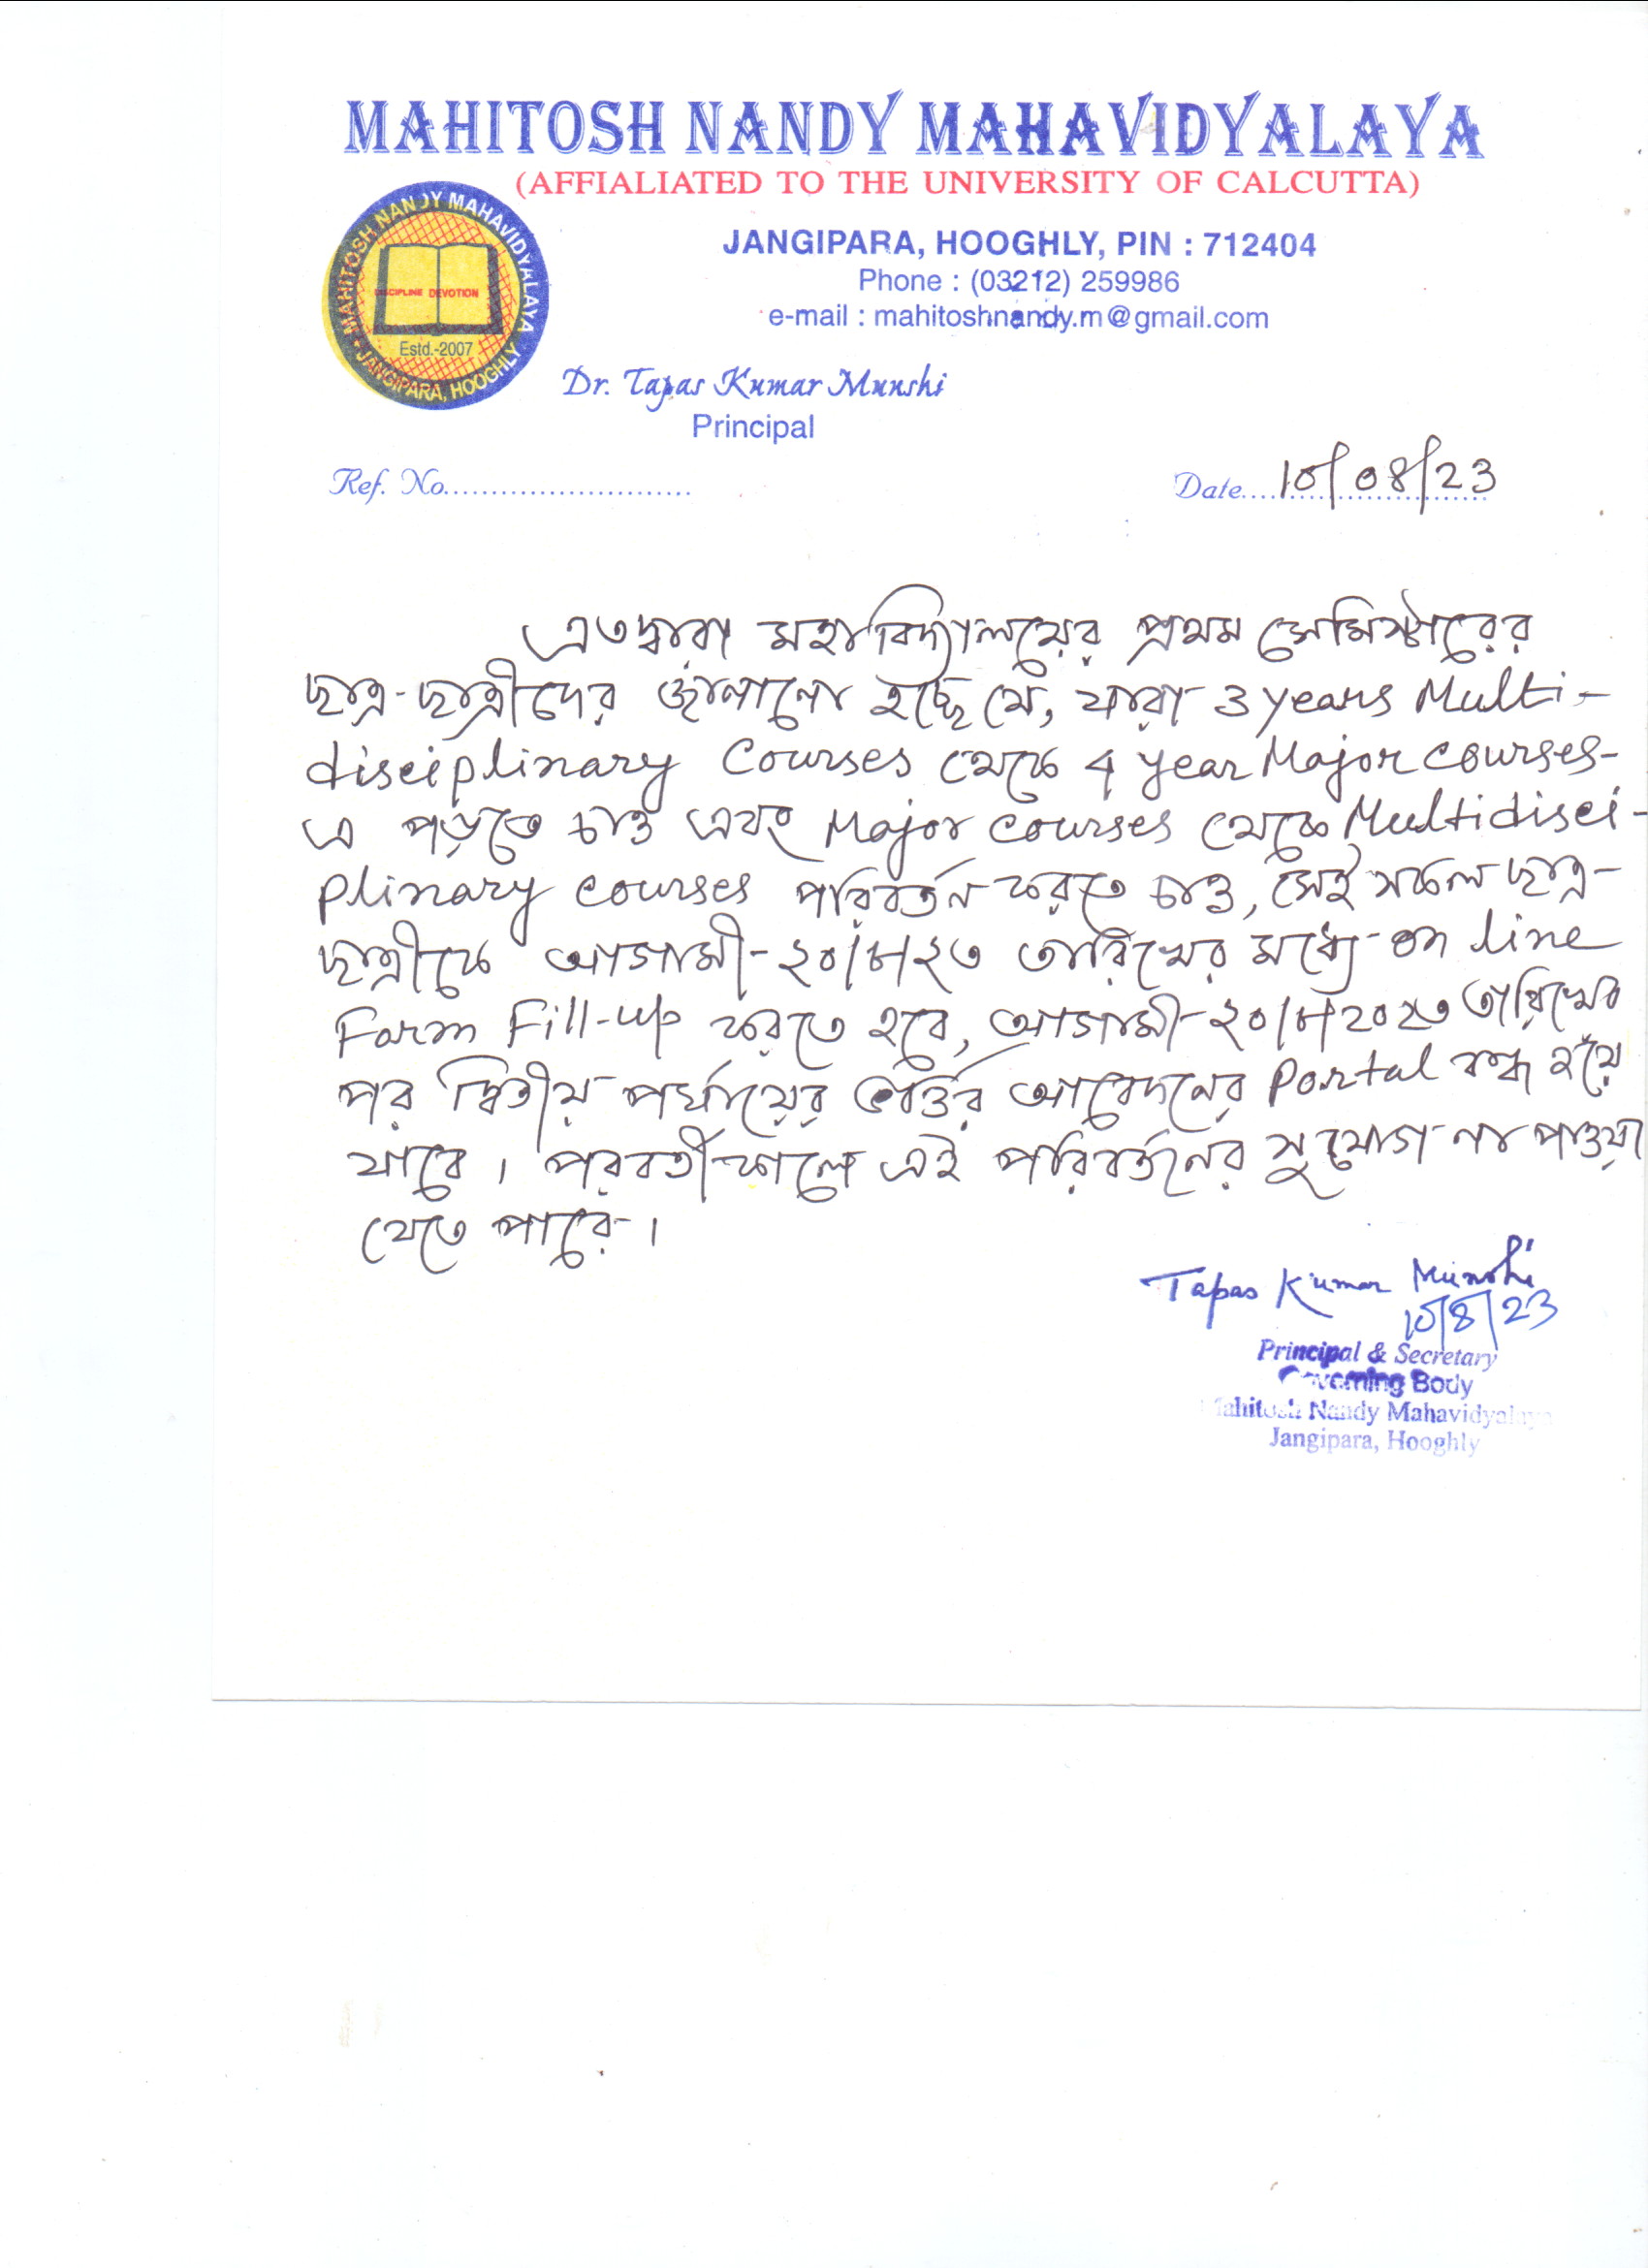 MAHITOSH NANDY MAHAVIDYALAYA
(AFFIALIATED TO THE UNIVERSITY OF CALCUTTA)
MAHITOSH NANDY MAHAVIDYALAYA
DISCIPLINE DEVOTION
Estd.-2007
JANGIPARA, HOOGHLY
JANGIPARA, HOOGHLY, PIN : 712404
Phone : (03212) 259986
e-mail : mahitoshnandy.m@gmail.com
Dr. Tapas Kumar Munshi
Principal
Ref. No..........................
Date.... 10/08/23
এতদ্বারা মহাবিদ্যালয়ের প্রথম সেমিস্টারের
ছাত্র-ছাত্রীদের জানানো হচ্ছে যে, যারা 3 years Multi-
disciplinary Courses থেকে 4 year Major courses-
এ পড়তে চাও এবং Major courses থেকে Multidisci-
plinary courses পরিবর্তন করতে চাও, সেই সকল ছাত্র-
ছাত্রীকে আগামী-২০/৮/২৩ তারিখের মধ্যে on line
Form Fill-up করতে হবে, আগামী-২০/৮/২০২৩ তারিখের
পর দ্বিতীয় পর্যায়ের ভর্ত্তির আবেদনের Portal বন্ধ হয়ে
যাবে। পরবর্তীকালে এই পরিবর্তনের সুযোগ না পাওয়া
যেতে পারে।
Tapas Kumar Munshi
10/8/23
Principal & Secretary
Governing Body
Mahitosh Nandy Mahavidyalaya
Jangipara, Hooghly